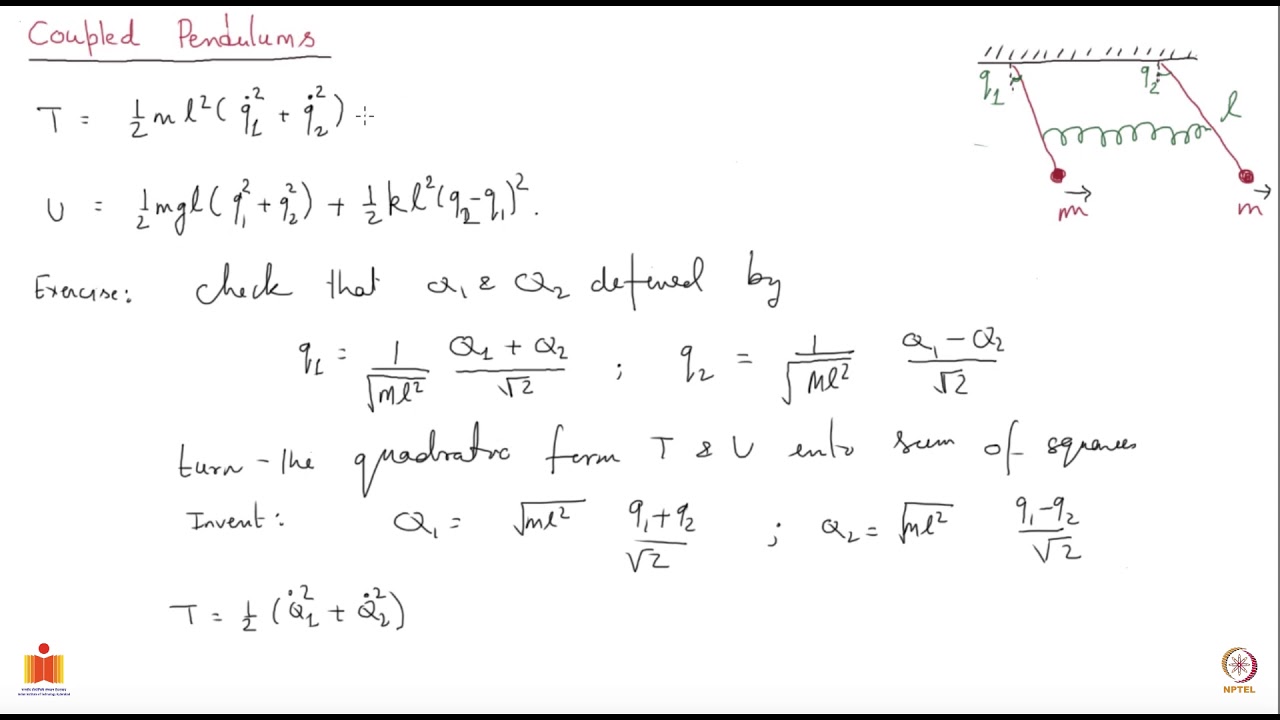 Coupled Pendulums
T = ½ m l² ( q̇₁² + q̇₂² )
U = ½ mgl ( q₁² + q₂² ) + ½ k l² (q₂ - q₁)².
q₁ q₂ l
m m
Exercise: Check that Q₁ & Q₂ defined by
q₁ = 1/√ml² (Q₁ + Q₂)/√2 ; q₂ = 1/√ml² (Q₁ - Q₂)/√2
turn the quadratic form T & U into sum of squares
Invent: Q₁ = √ml² (q₁+q₂)/√2 ; Q₂ = √ml² (q₁-q₂)/√2
T = ½ ( Q̇₁² + Q̇₂² )
NPTEL